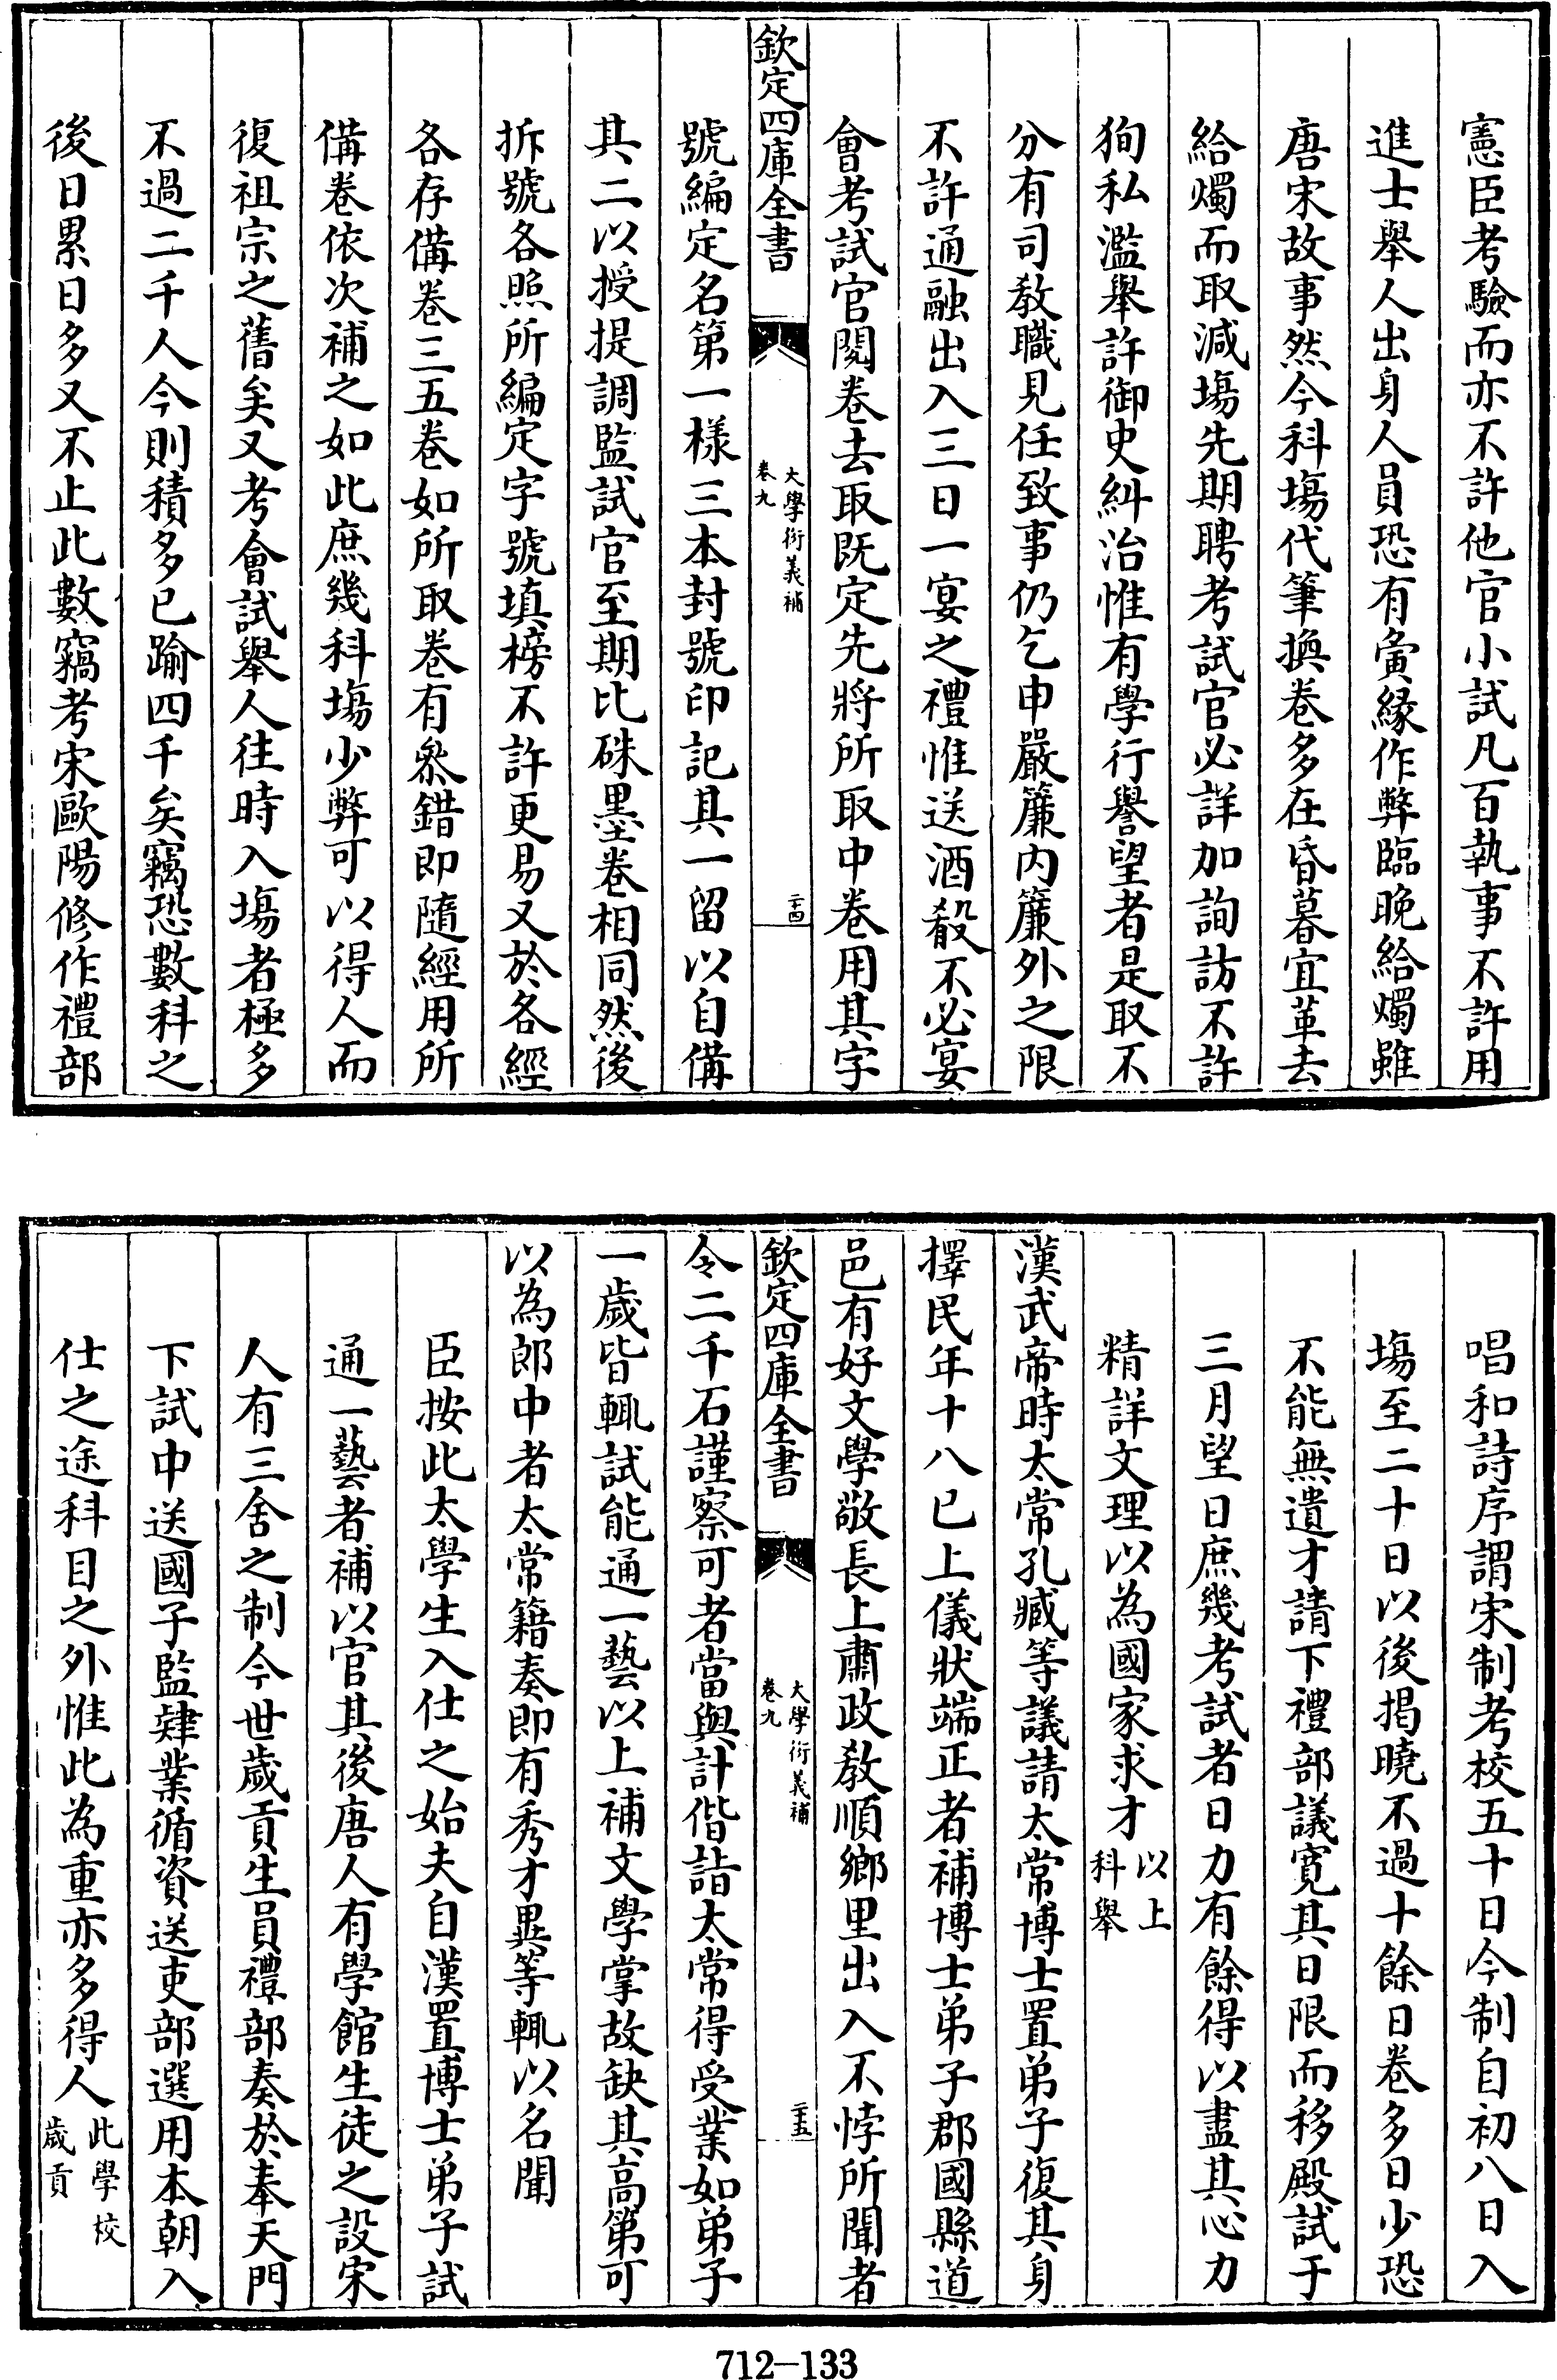 憲臣考驗而亦不許他官小試凡百執事不許用
進士舉人出身人員恐有夤縁作弊臨晚給燭雖
唐宋故事然今科塲代筆換卷多在昏暮宜革去
給燭而取減塲先期聘考試官必詳加詢訪不許
狥私濫舉許御史糾治惟有學行譽望者是取不
分有司敎職見任致事仍乞申嚴簾内簾外之限
不許通融出入三日一宴之禮惟送酒殽不必宴
會考試官閲卷去取既定先將所取中卷用其字
欽定四庫全書
大學衍義補
卷九
二十四
號編定名第一様三本封號印記其一留以自備
其二以授提調監試官至期比硃墨卷相同然後
拆號各照所編定字號填榜不許更易又於各經
各存備卷三五卷如所取卷有叅錯即隨經用所
備卷依次補之如此庶幾科塲少弊可以得人而
復祖宗之舊矣又考會試舉人往時入塲者極多
不過二千人今則積多已踰四千矣竊恐數科之
後日累日多又不止此數竊考宋歐陽修作禮部
唱和詩序謂宋制考校五十日今制自初八日入
塲至二十日以後揭曉不過十餘日卷多日少恐
不能無遺才請下禮部議寛其日限而移殿試于
三月望日庶幾考試者日力有餘得以盡其心力
精詳文理以為國家求才以上
科舉
漢武帝時太常孔臧等議請太常博士置弟子復其身
擇民年十八已上儀狀端正者補博士弟子郡國縣道
邑有好文學敬長上肅政敎順鄉里出入不悖所聞者
欽定四庫全書
大學衍義補
卷九
二十五
令二千石謹察可者當與計偕詣太常得受業如弟子
一歲皆輒試能通一藝以上補文學掌故缺其高第可
以為郎中者太常籍奏即有秀才異等輒以名聞
臣按此太學生入仕之始夫自漢置博士弟子試
通一藝者補以官其後唐人有學館生徒之設宋
人有三舍之制今世歲貢生員禮部奏於奉天門
下試中送國子監肄業循資送吏部選用本朝入
仕之途科目之外惟此為重亦多得人此學校
歲貢
712-133